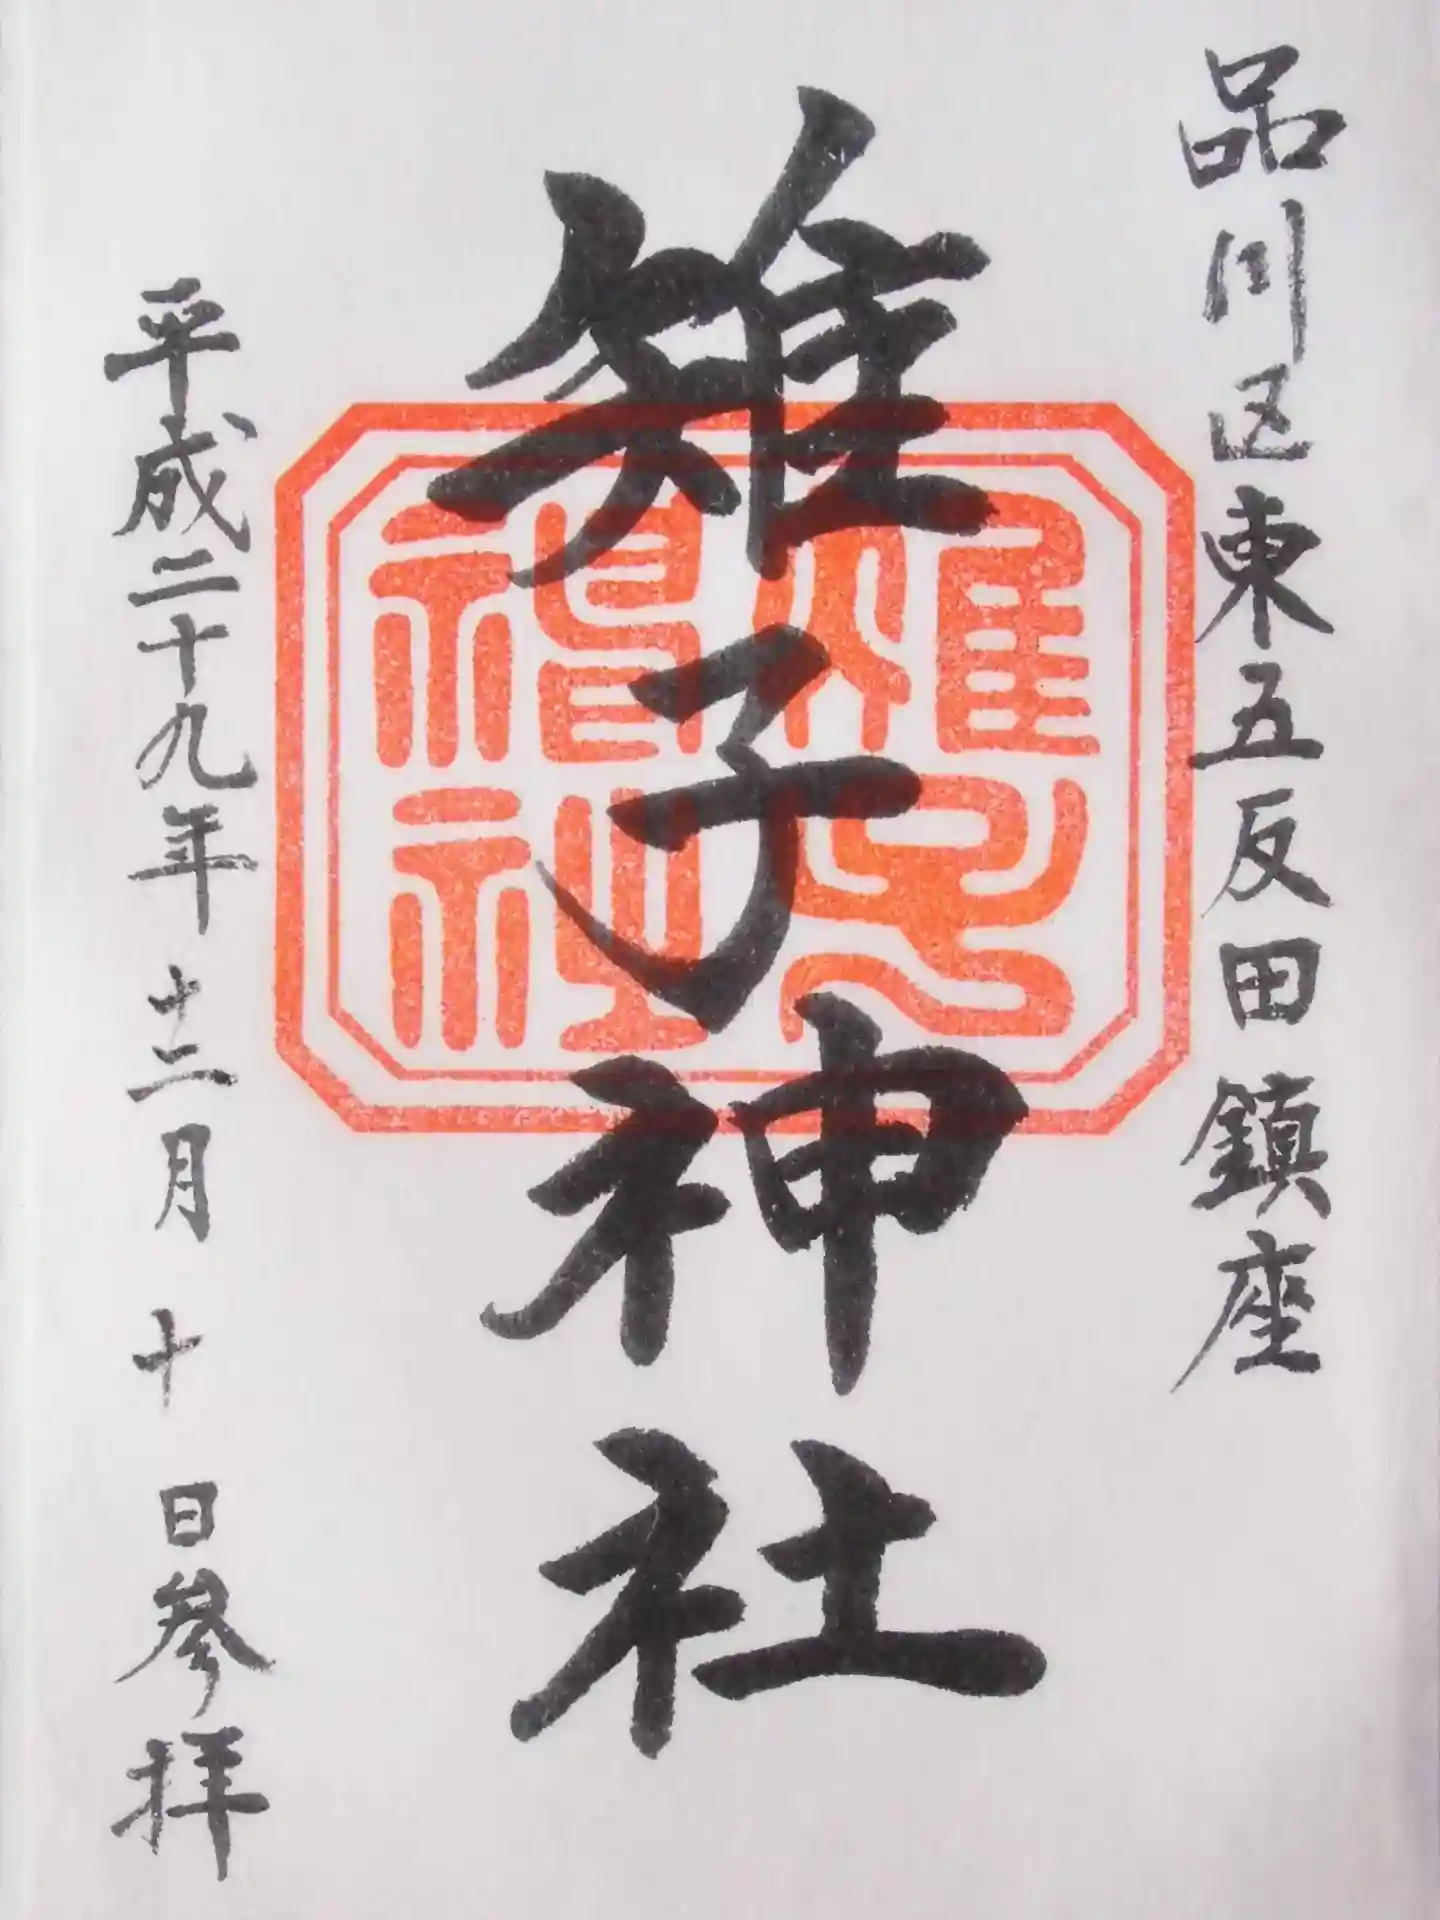 品川区東五反田鎮座
雉子神社
雉子神社
平成二十九年十二月十日参拝